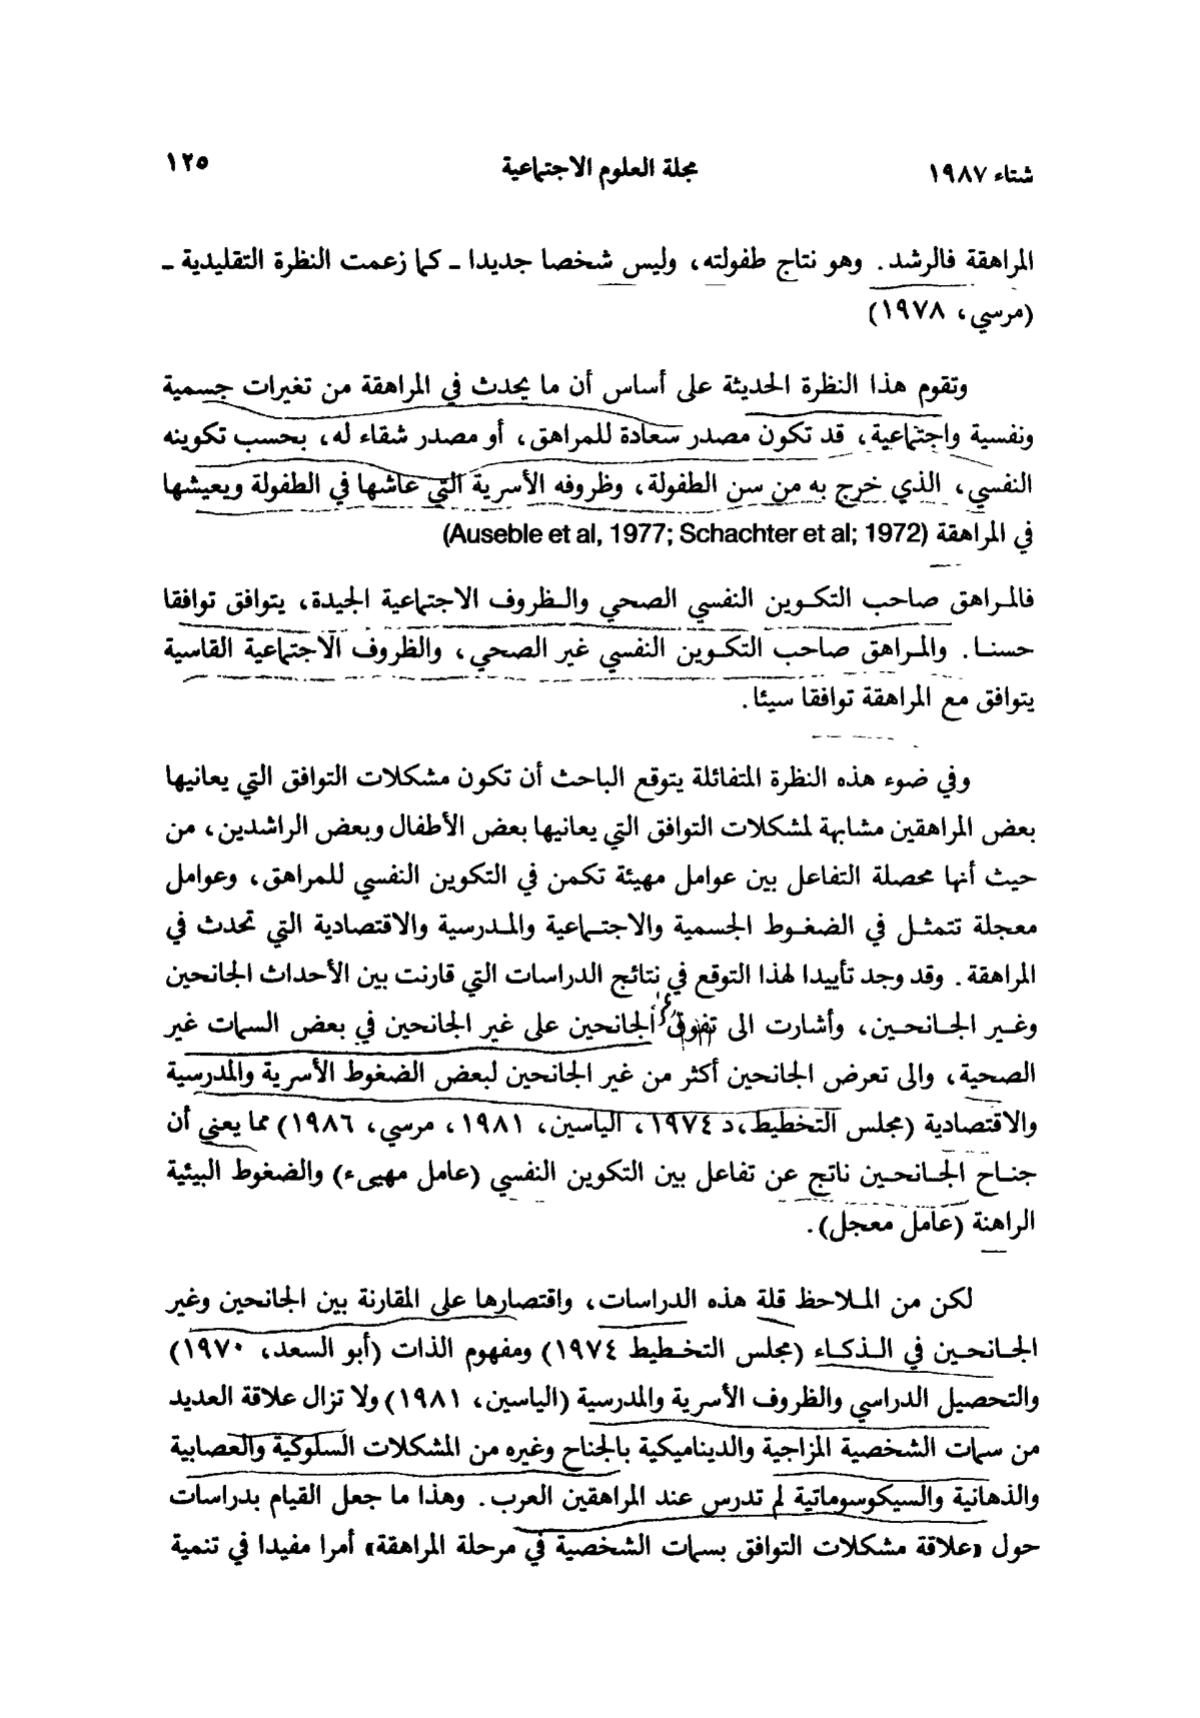 شتاء ١٩٨٧
مجلة العلوم الاجتماعية
١٢٥
المراهقة فالرشد. وهو نتاج طفولته، وليس شخصا جديدا ـ كما زعمت النظرة التقليدية ـ
(مرسي، ١٩٧٨)
وتقوم هذا النظرة الحديثة على أساس أن ما يحدث في المراهقة من تغيرات جسمية
ونفسية واجتماعية، قد تكون مصدر سعادة للمراهق، أو مصدر شقاء له، بحسب تكوينه
النفسي، الذي خرج به من سن الطفولة، وظروفه الأسرية التي عاشها في الطفولة ويعيشها
في المراهقة (Auseble et al, 1977; Schachter et al; 1972)
فالمراهق صاحب التكوين النفسي الصحي والظروف الاجتماعية الجيدة، يتوافق توافقا
حسنا. والمراهق صاحب التكوين النفسي غير الصحي، والظروف الاجتماعية القاسية
يتوافق مع المراهقة توافقا سيئا.
وفي ضوء هذه النظرة المتفائلة يتوقع الباحث أن تكون مشكلات التوافق التي يعانيها
بعض المراهقين مشابهة لمشكلات التوافق التي يعانيها بعض الأطفال وبعض الراشدين، من
حيث أنها محصلة التفاعل بين عوامل مهيئة تكمن في التكوين النفسي للمراهق، وعوامل
معجلة تتمثل في الضغوط الجسمية والاجتماعية والمدرسية والاقتصادية التي تحدث في
المراهقة. وقد وجد تأييدا لهذا التوقع في نتائج الدراسات التي قارنت بين الأحداث الجانحين
وغير الجانحين، وأشارت الى تفوق الجانحين على غير الجانحين في بعض السمات غير
الصحية، والى تعرض الجانحين أكثر من غير الجانحين لبعض الضغوط الأسرية والمدرسية
والاقتصادية (مجلس التخطيط،د ١٩٧٤، الياسين، ١٩٨١، مرسي، ١٩٨٦) مما يعني أن
جناح الجانحين ناتج عن تفاعل بين التكوين النفسي (عامل مهيىء) والضغوط البيئية
الراهنة (عامل معجل).
لكن من الملاحظ قلة هذه الدراسات، واقتصارها على المقارنة بين الجانحين وغير
الجانحين في الذكاء (مجلس التخطيط ١٩٧٤) ومفهوم الذات (أبو السعد، ١٩٧٠)
والتحصيل الدراسي والظروف الأسرية والمدرسية (الياسين، ١٩٨١) ولا تزال علاقة العديد
من سمات الشخصية المزاجية والديناميكية بالجناح وغيره من المشكلات السلوكية والعصابية
والذهانية والسيكوسوماتية لم تدرس عند المراهقين العرب. وهذا ما جعل القيام بدراسات
حول «علاقة مشكلات التوافق بسمات الشخصية في مرحلة المراهقة» أمرا مفيدا في تنمية